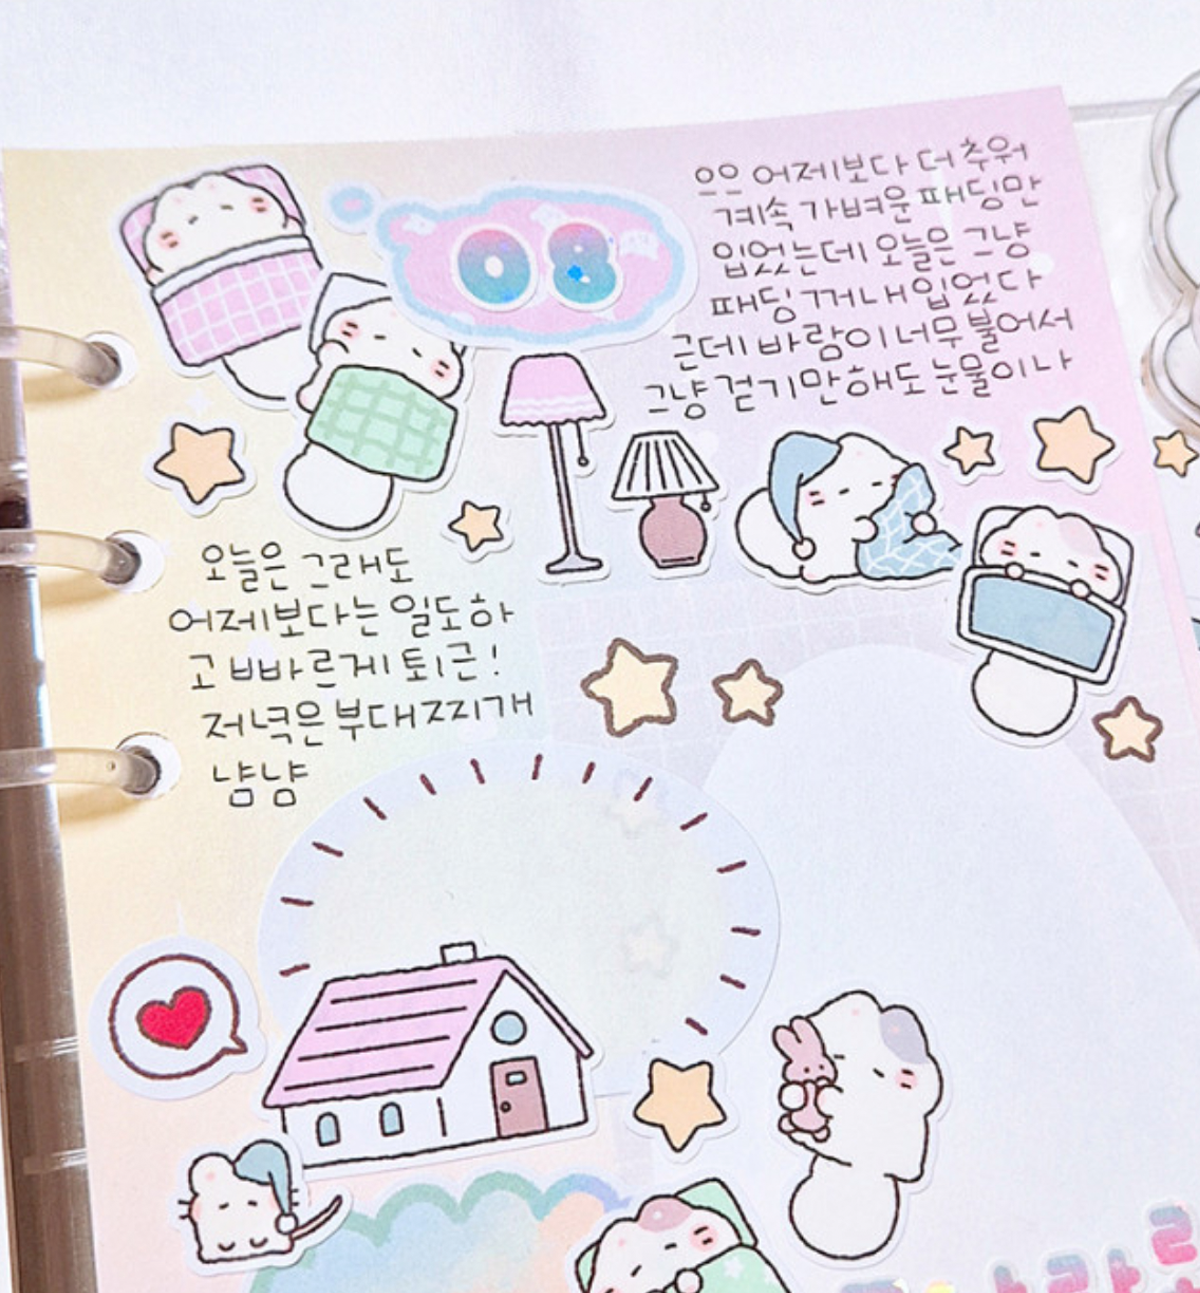 08
으으 어제보다 더 추워
계속 가벼운 패딩만
입었는데 오늘은 그냥
패딩 꺼내 입었다
근데 바람이 너무 불어서
그냥 걷기만 해도 눈물이 나
오늘은 그래도
어제보다는 일도 하
고 빠르게 퇴근!
저녁은 부대찌개
냠냠